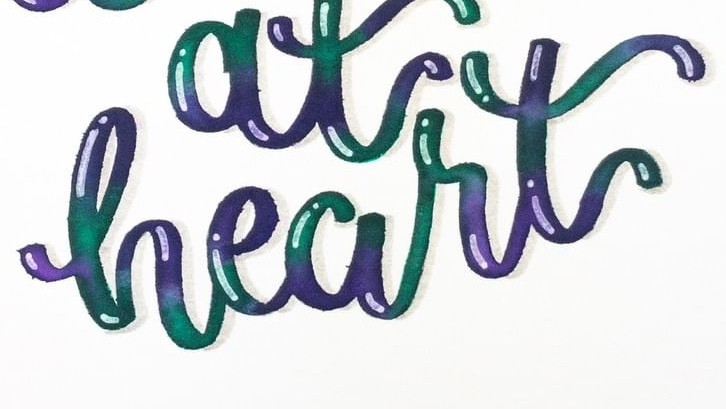 at
heart